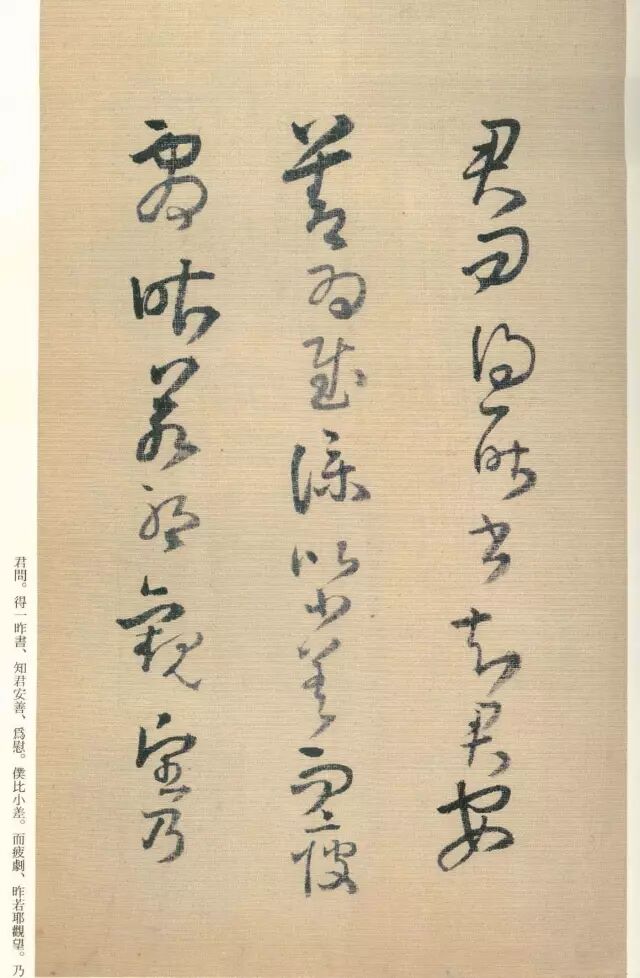 君問得一昨書知君安
善爲慰僕比小差而疲
劇昨若耶觀望乃
君問。得一昨書、知君安善、爲慰。僕比小差。而疲劇、昨若耶觀望。乃